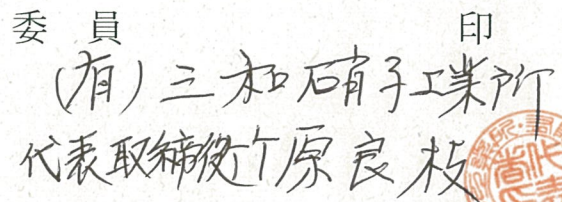 委員 印
(有)三和硝子工業所
代表取締役竹原良枝